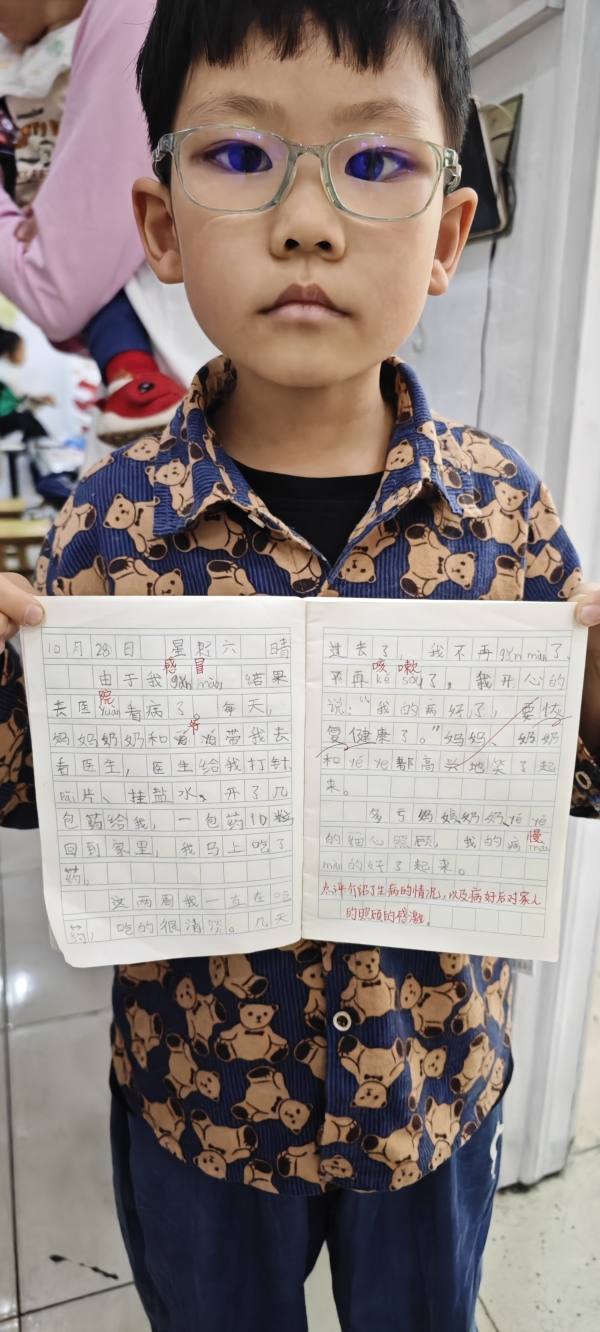 10月28日 星期六 晴
感冒
由于我gǎn mào，结果
院
去医yuàn看病了。每天，
爷
妈妈奶奶和爷爷带我去
看医生，医生给我打针
片、挂盐水、开了几
包药给我，一包药10粒
回到家里，我马上吃了
药。
这两周我一直在吃
药，吃的很清淡。几天
过去了，我不再gǎn mào了，
咳嗽
不再ké sòu了，我开心的
说：“我的病好了，要恢
复健康了。”妈妈、奶奶
和yé ye都高兴地笑了起
来。
多亏妈妈奶奶yé ye
的细心照顾，我的病慢
màn的好了起来。
点评介绍了生病的情况，以及病好后对家人
的照顾的感激。